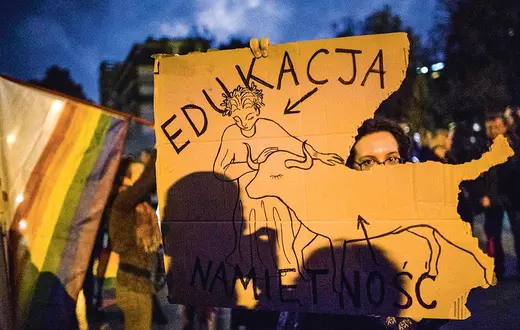 EDUKACJA
NAMIĘTNOŚĆ